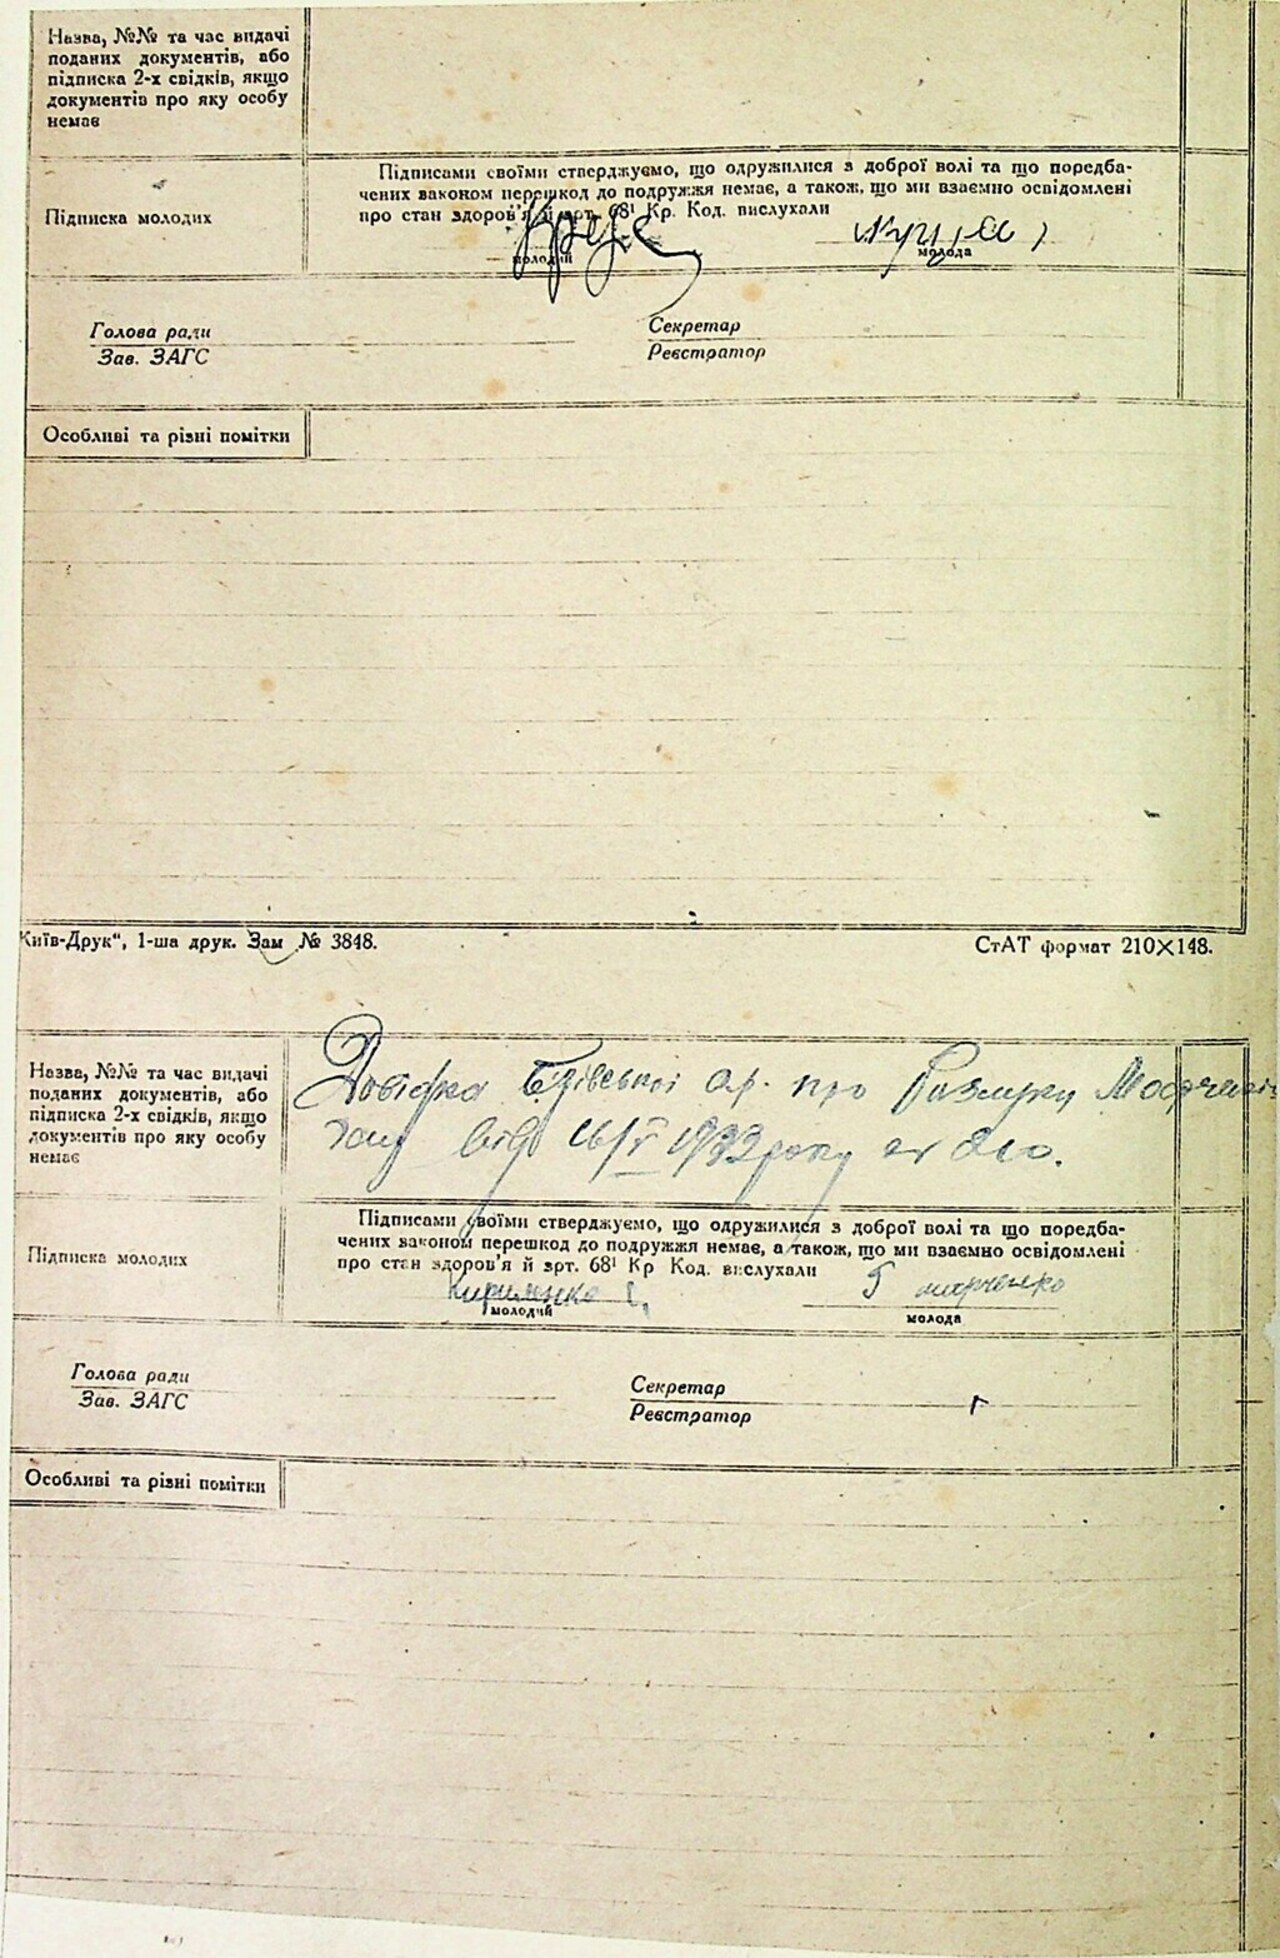 Назва, №№ та час видачі
поданих документів, або
підписка 2-х свідків, якщо
документів про яку особу
немає
Підписка молодих
Підписами своїми стверджуємо, що одружилися з доброї волі та що передба-
чених законом перешкод до подружжя немає, а також, що ми взаємно освідомлені
про стан здоров'я й арт. 68¹ Кр. Код. вислухали
молодий
молода
Голова ради
Зав. ЗАГС
Секретар
Реєстратор
Особливі та різні помітки
Київ-Друк“, 1-ша друк. Зам № 3848.
СтАТ формат 210×148.
Назва, №№ та час видачі
поданих документів, або
підписка 2-х свідків, якщо
документів про яку особу
немає
Довідка про
від 16/V 1933 року
Підписка молодих
Підписами своїми стверджуємо, що одружилися з доброї волі та що поредба-
чених законом перешкод до подружжя немає, а також, що ми взаємно освідомлені
про стан здоров'я й арт. 68¹ Кр Код. вислухали
Кириленко
молодий
марченко
молода
Голова ради
Зав. ЗАГС
Секретар
Реєстратор
Особливі та різні помітки